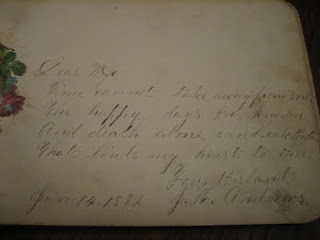 Dear
Time cannot take away from me
The happy days I've known
And death alone can break the
That binds my heart to
Your Husband
Jan 14. 1882 J. W. Andrews.